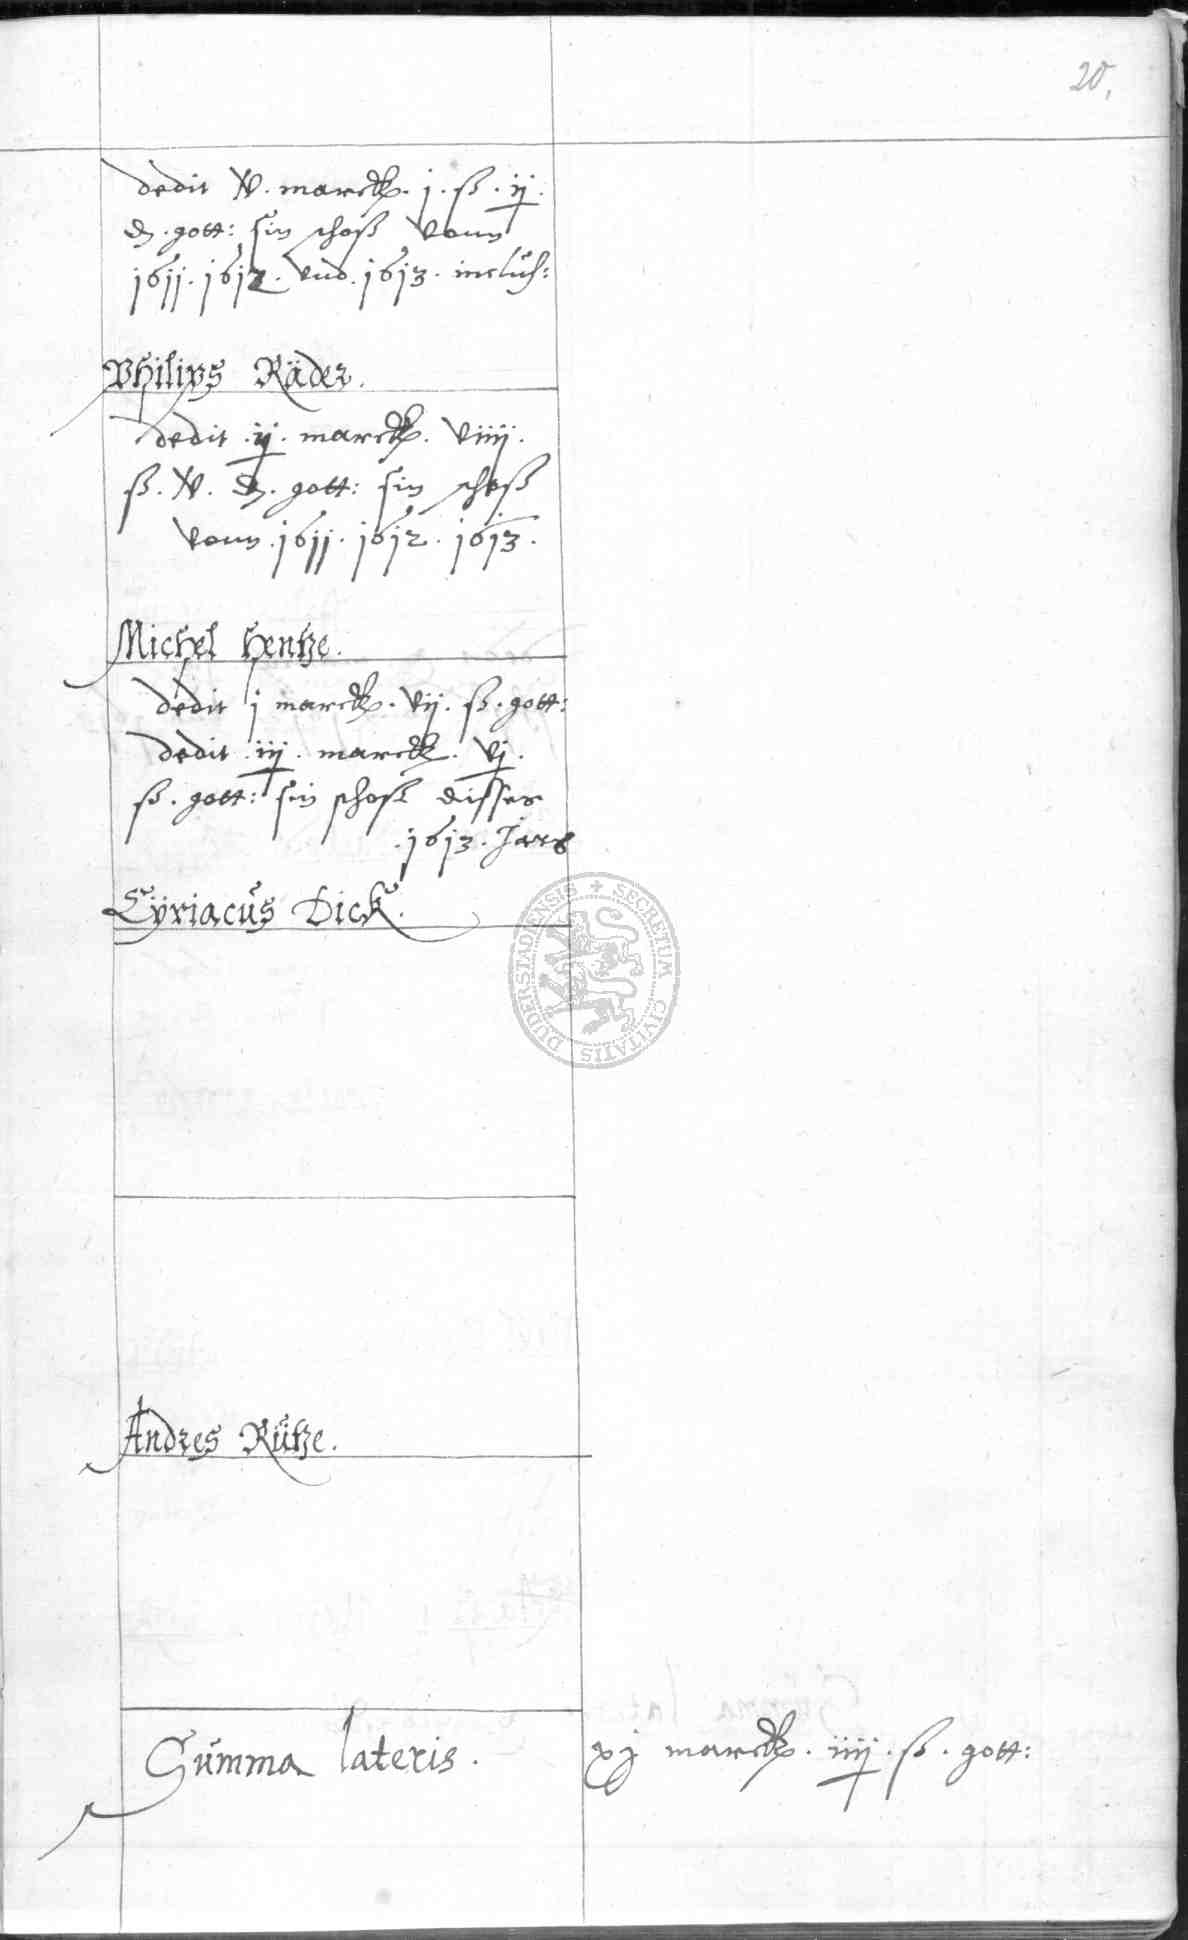 20.
dedit v. marck. j. ß. ij.
d. gott: sin schoß vonn
1611. 1612. vnd. 1613. inclus:
Philips Räder.
dedit. ij. marck. viiij.
ß. v. d. gott: sin schoß
vonn. 1611. 1612. 1613.
Michel Hentze.
dedit j marck. vij. ß. gott:
dedit. iij. marck. vj.
ß. gott: sin schoß disses
. 1613. Jars
Cÿriacus Dick.
SECRETUM CIVITATIS DUDERSTADENSIS
Andres Rütze.
Summa lateris.
xj marck. iiij. ß. gott: